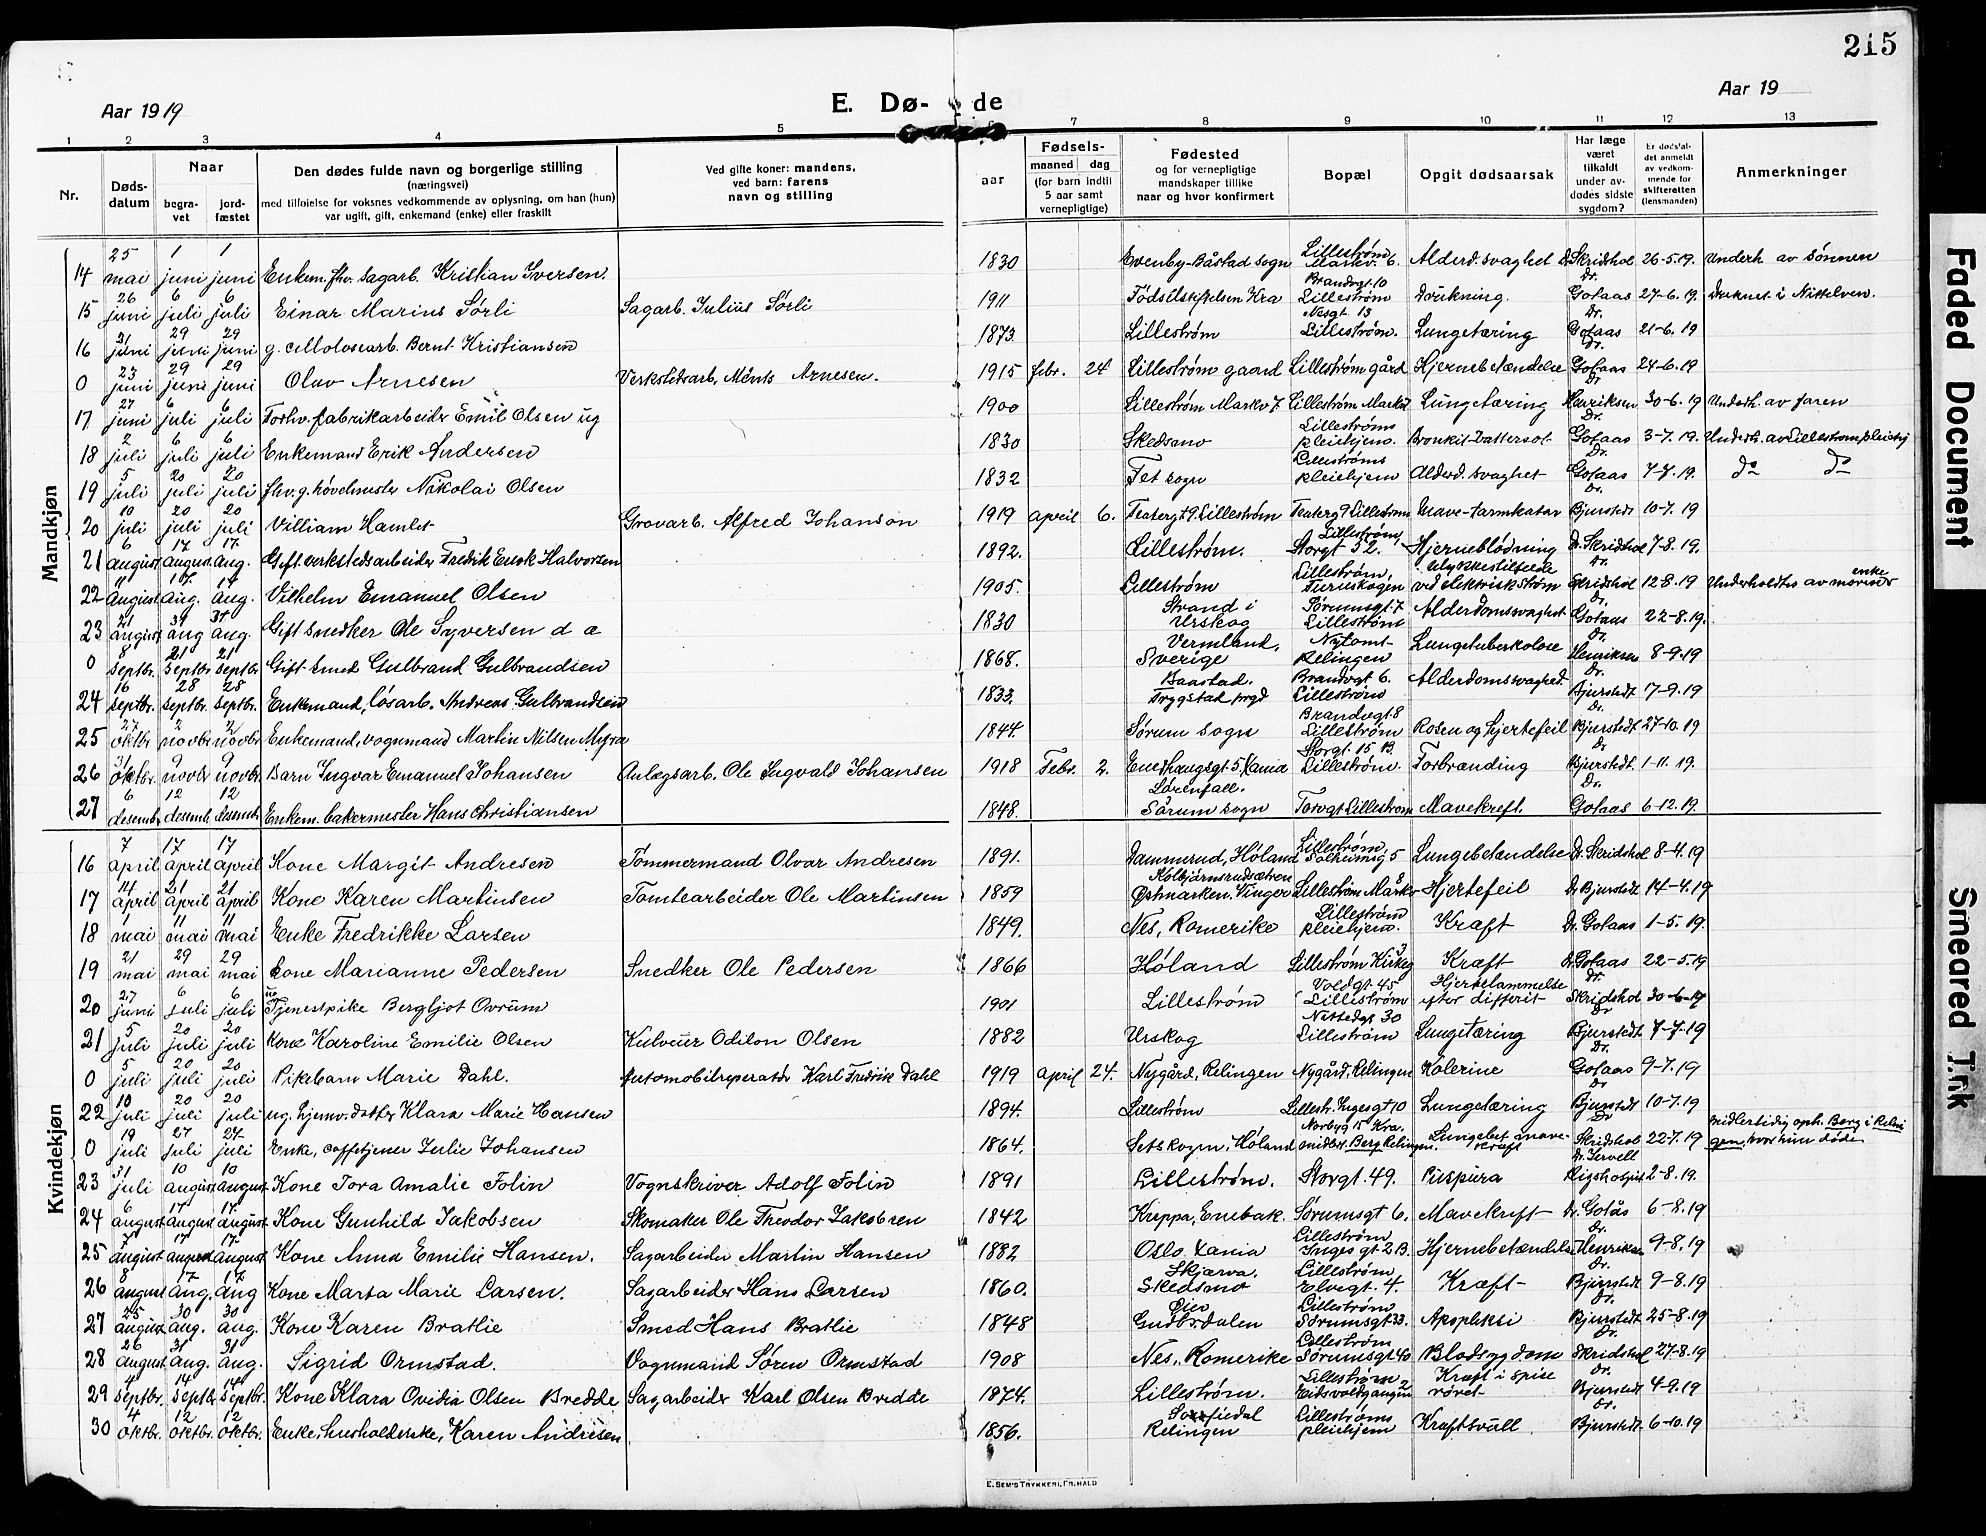 215
Aar 1919
E. Dø- de
Aar 19
1 2 3 4 5 6 7 8 9 10 11 12 13
Nr.
Døds-datum
Naar
begra-vet
jord-fæstet
Den dødes fulde navn og borgerlige stilling
(næringsvei)
med tilføielse for voksnes vedkommende av oplysning, om han (hun)
var ugift, gift, enkemand (enke) eller fraskilt
Ved gifte koner: mandens,
ved barn: farens
navn og stilling
aar
Fødsels-
maaned dag
(for barn indtil
5 aar samt
vernepligtige)
Fødested
og for vernepligtige
mandskaper tillike
naar og hvor konfirmert
Bopæl
Opgit dødsaarsak
Har læge
været
tilkaldt
under av-
dødes sidste
sygdom?
Er dødsfal-
det anmeldt
av vedkom-
mende for
skifteretten
(lensmanden)
Anmerkninger
Mandkjøn
14 25 mai 1 juni 1 juni Enkem. fhv. sagarb. Kristian Iversen. 1830 Evenby-Båstad sogn Lillestrøm Markv. 6. Alderd. svaghet Dr. Skridshol 26-5.19. Underh. av sønnen
15 26 juni 6 juli 6 juli Einar Marius Sørli Sagarb. Julius Sørli 1911 Fødselsstiftelsen Kra Brandvgt. 10 Lillestrøm Drukning. Dr. Gotaas 27-6.19. Druknet i Nittelven.
16 21 juni 29 juni 29 juni g. cellulosearb. Bernt Kristiansen 1873 Lillestrøm Nesgt 13 Lillestrøm. Lungetæring Dr. Gotaas 21-6.19
0 23 juni 29 juni 29 juni Olav Arnesen Verkstedsarb. Ments Arnesen. 1915 febr. 24 Lillestrøm gaard Lillestrøm gård Hjernebetændelse Dr. Gotaas 24-6.19
17 27 juni 6 juli 6 juli Forhv. fabrikarbeider Emil Olsen ug 1900 Lillestrøm Markv 7. Lillestrøm Lungetæring Dr. Henriksen 30-6.19 Underh. av faren
18 2 juli 6 juli 6 juli Enkemand Erik Andersen 1830 Skedsmo Lillestrøms pleiehjem. Bronkit- Dr. Gotaas 3-7.19. Underh. av Lillestrøm pleiehj
19 5 juli 20 juli 20 juli fhv. g. høvelmester Nikolai Olsen 1832 Fet sogn Lillestrøms pleiehjem Alderd. svaghet Dr. Gotaas 7-7.19. do do
20 10 juli 20 juli 20 juli Villiam Hamlet Grovarb. Alfred Johanson 1919 april 6. Teatergt 9. Lillestrøm Teaterg 9 Lillestrøm Mave-tarmkatar Dr. Bjurstedt 10-7.19
21 6 august 17 august 17 aug. Gift verkstedsarbeider Fredrik Halvorsen 1892. Lillestrøm. Lillestrøm, Storgt 32. Hjerneblødning Dr. Skridshol 7-8.19.
22 11 august 17 aug. 17 aug. Vilhelm Emanuel Olsen 1905. Lillestrøm Lillestrøm, Furuskogen Ulykkestilfælde ved elektrisk strøm Dr. Skridshol 12-8.19 Underholdtes av moren enke
23 21 august 31 aug 31 aug. Gift snedker Ole Syversen d a 1830 Strand i Urskog Sørumsgt 7 Lillestrøm Alderdomssvaghet Dr. Gotaas 22-8.19.
0 8 septbr. 21 septbr 21 septbr. Gift smed Gulbrand Gulbrandsen 1868. Vermland, Sverige Relingen Lungetuberkolose Dr. Henriksen 8-9.19
24 16 septbr. 28 septbr. 28 septbr. Enkemand, løsarb. Andreas Gulbrandsen 1833. Baastad. Trygstad prgd Brandvgt 6. Lillestrøm Alderdomssvaghed. Dr. Bjurstedt 17-9.19
25 27 oktbr. 2 novbr. 2 novbr. Enkemand, vognmand Martin Nilsen Myra 1844. Sørum sogn Brandvgt. 8 Lillestrøm Rosen og hjertefeil Dr. Bjurstedt 27-10.19
26 31 oktbr. 9 novbr. 9 novbr. Barn Ingvar Emanuel Johansen Anlægsarb. Ole Ingvald Johansen 1918 Febr. 2. Enerhaugsgt 5, Xania Storgt. 15 B. Lillestrøm. Forbrænding Dr. Bjurstedt. 1-11.19.
27 6 desemb. 12 desemb. 12 desemb. Enkem. bakermester Hans Christiansen 1848. Sørenfall. Sørum sogn Torvgt Lillestrøm Mavekreft. Dr. Gotaas 6-12.19
Kvindekjøn
16 7 april 17 april 17 april Kone Margit Andresen Tømmermand Olvar Andresen 1891. Dammerud, Høland Lillestrøm, Solheimsg 5 Lungebetændelse Dr. Skridshol 8-4.19
17 14 april 21 april 21 april Kone Karen Martinsen Tomtearbeider Ole Martinsen 1859 Kolbjørnsrudsætren Østmarken. Vinger Lillestrøm Markv 8 Hjertefeil Dr. Bjurstedt 14-4.19
18 1 mai 11 mai 11 mai Enke Fredrikke Larsen 1849. Nes, Romerike Lillestrøm pleiehjem. Kræft Dr. Gotaas 1-5.19.
19 21 mai 29 mai 29 mai Kone Marianne Pedersen Snedker Ole Pedersen 1866 Høland Lillestrøm Kirkeg 3 Kræft Dr. Gotaas 22-5.19
20 27 juni 6 juli 6 juli ug Tjenestpike Bergljot Ovrum 1901 Lillestrøm Voldgt 45 Lillestrøm Hjertelammelse efter difterit Dr. Skridshol 30-6-19
21 5 juli 20 juli 20 juli Kone Karoline Emilie Olsen Odilon Olsen 1882 Urskog Nittedgt 30 Lillestrøm Lungetæring Dr. Bjurstedt 7-7.19
0 5 juli 20 juli 20 juli Pikebarn Marie Dahl. Automobilreperatør Karl Fredrik Dahl 1919 april 24. Nygård, Relingen Nygård, Relingen Kolerine Dr. Gotaas 9-7.19
22 10 juli 20 juli 20 juli ug. hjemv. datter Klara Marie Hansen 1894. Lillestrøm Lillestr. Ingesgt 10 Lungetæring Dr. Bjurstedt 10-7.19
0 19 juli 27 juli 27 juli Enke, Julie Johansen 1864. Setskogn, Høland Norbyg 15 Kra. midlert. Berg Relingen. Lungebet. mavekræft Dr. Skridshol 22-7.19 midlertidig oph. Berg i Relingen, hvor hun døde
23 31 juli 10 august 10 august Kone Tora Amalie Folin Vognskriver Adolf Folin 1891 Lillestrøm. Storgt. 49. Puspura Dr. Servell Rigshospit 2-8.19.
24 6 august 17 august 17 august Kone Gunhild Jakobsen Skomaker Ole Theodor Jakobsen 1842 Kreppa, Enebak. Sørumsgt 6. Mavekræft Dr. Gotås 6-8.19
25 7 august 17 august 17 august Kone Anna Emilie Hansen. Sagarbeider Martin Hansen 1882 Oslo. Xania Lillestrøm Ingesgt 2 B. Hjernebetændelse Dr. Henriksen 9-8.19
26 8 august 17 aug. 17 aug Kone Marta Marie Larsen. Sagarbeider Hans Larsen 1860. Skjærva. Skedsmo Lillestrøm, Elvegt. 4. Kræft Dr. Bjurstedt 9-8.19
27 25 august 30 aug. 30 aug. Kone Karen Bratlie Smed Hans Bratlie 1848 Øier Gudbrdalen Lillestrøm Sørumsgt 33. Apopleksi Dr. Bjurstedt 25-8.19
28 26 august 31 aug. 31 aug. Sigrid Ormstad. Vognmand Søren Ormstad 1908 Nes, Romerike Lillestrøm Sørumsgt 40 Blodsygdom Dr. Skridshol 27-8.19
29 4 septbr. 14 septbr. 14 septbr. Kone Klara Ovidia Olsen Bredde Sagarbeider Karl Olsen Bredde 1874. Lillestrøm. Lillestrøm Eidsvoldgangen 2 Kræft i spiserøret Dr. Bjurstedt 4-9.19
30 4 oktbr. 12 oktbr. 12 oktbr. Enke, Karen Andresen 1856. Relingen Lillestrøms pleiehjem Kræftsvull. Dr. Bjurstedt 6-10.19
E. SEM'S TRYKKERI, FR.HALD
Faded Document
Smeared Ink